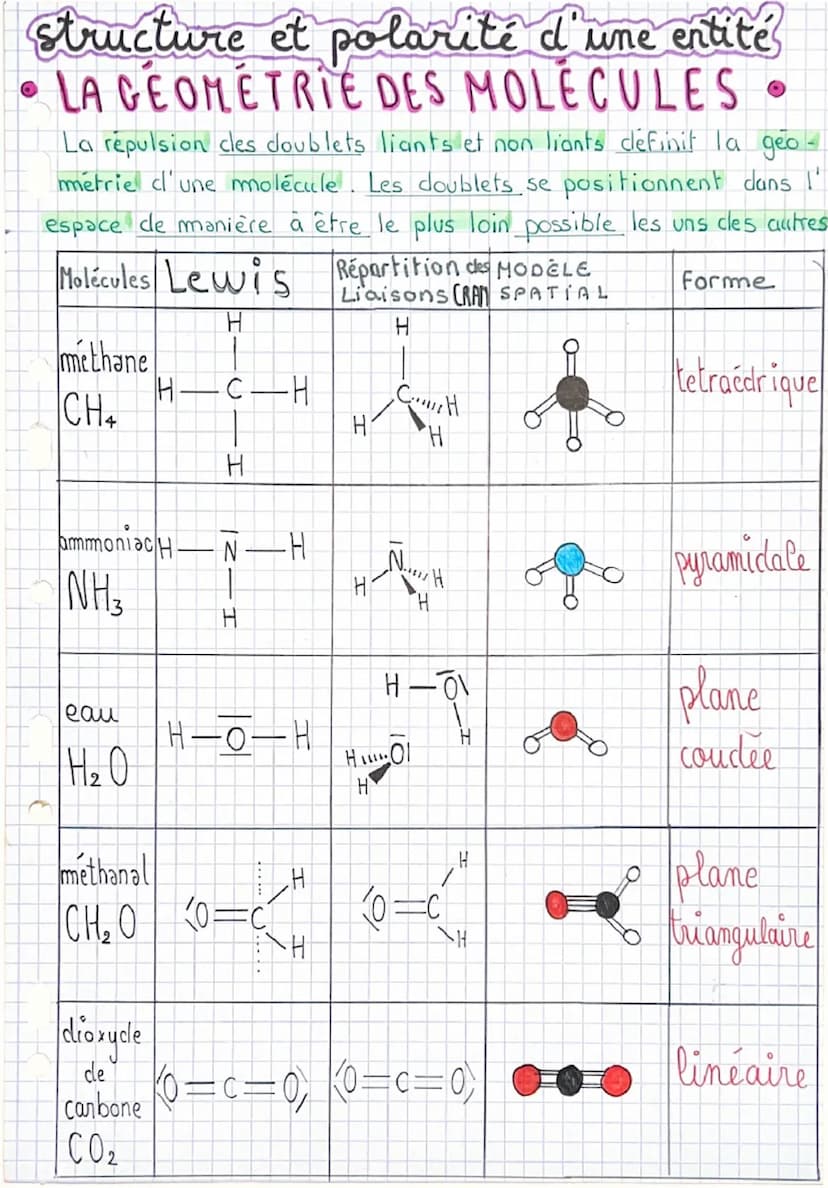 structure et polarité d'une entité
• LA GÉOMÉTRIE DES MOLÉCULES •
La répulsion des doublets liants et non liants définit la géo-
métrie d'une molécule. Les doublets se positionnent dans l'
espace de manière à être le plus loin possible les uns des autres
Molécules Lewis Répartition des Liaisons CRAM MODÈLE SPATIAL Forme
méthane
CH₄
H
H — C — H
H
H
C H
H H
tetraédrique
ammoniac
NH₃
H — N — H
H
N
H H
H
pyramidale
eau
H₂O
H — O — H
H — O
H
H O
H
plane
coudée
méthanal
CH₂O
O = C
H
H
O = C
H
H
plane
triangulaire
dioxyde
de
carbone
CO₂
O = C = O
O = C = O
linéaire